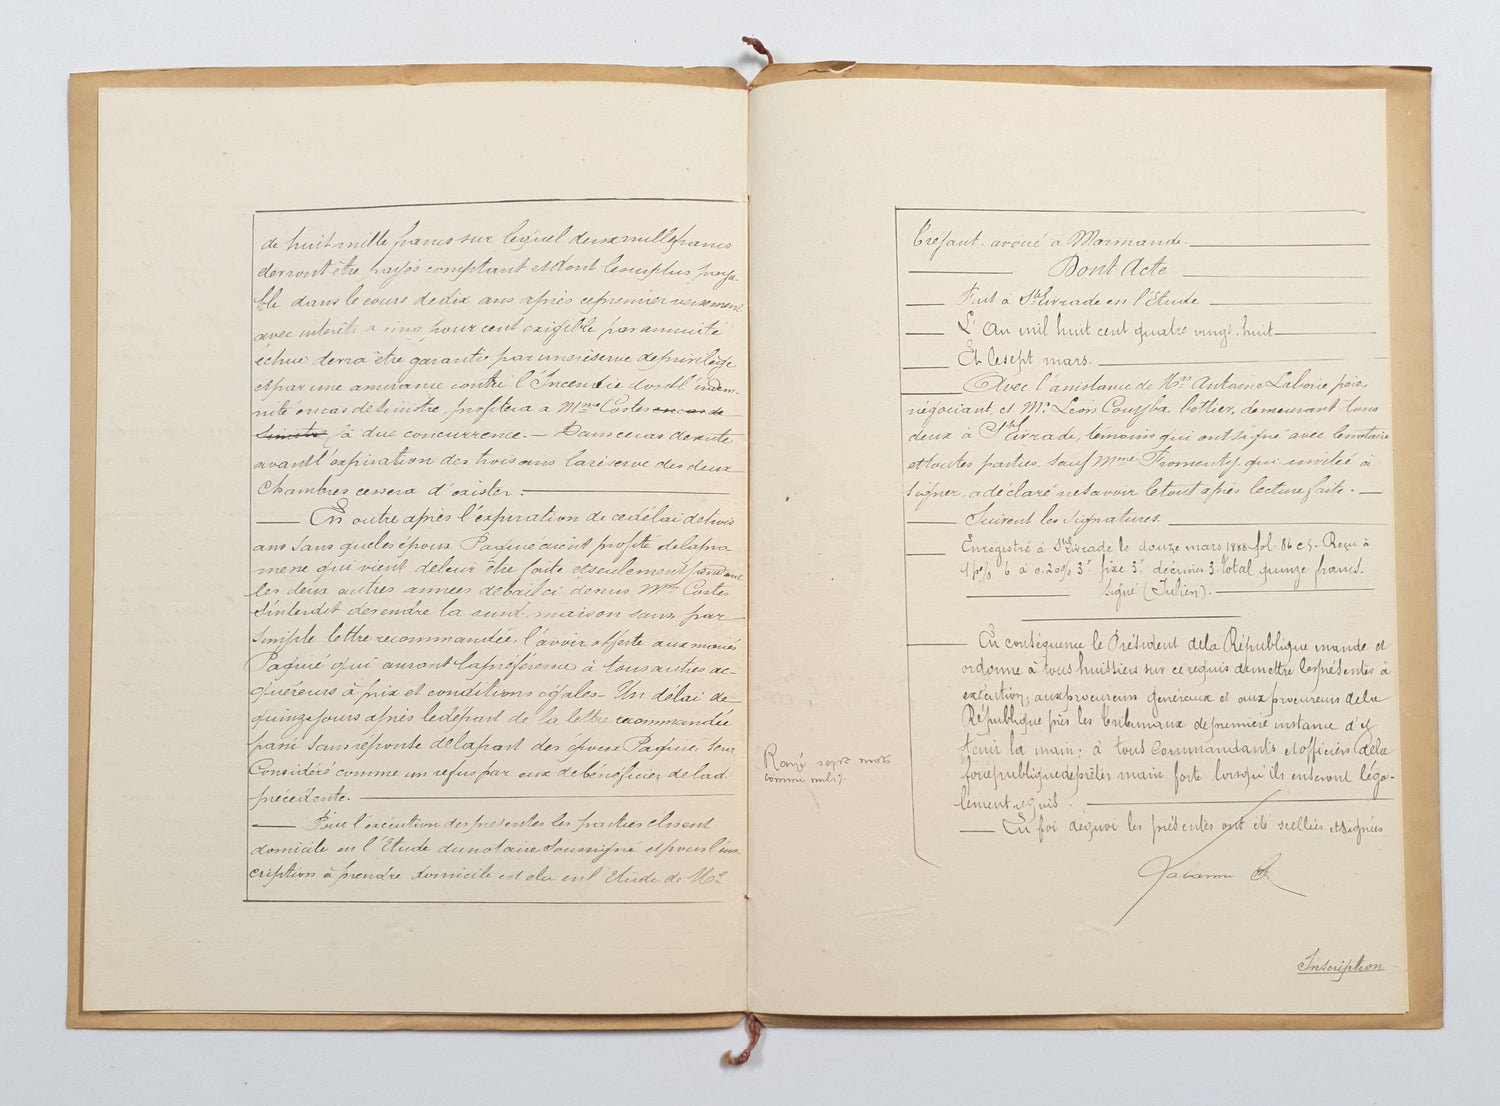 de huit mille francs sur lequel deux mille francs
devront être payés comptant et dont le surplus paya-
ble dans le cours de dix ans après ce premier versement
avec intérêts a cinq pour cent exigible par annuité
échue devra être garantie par une réserve de privilège
et par une assurance contre l'Incendie dont l'indem-
nité en cas de sinistre, profitera a Mme Costes en cas de
sinistre jà due concurrence. — Dans ce cas de vente
avant l'expiration des trois ans la réserve des deux
chambres cessera d'exister.
En outre après l'expiration de ce délai de trois
ans sans que les époux Pagnié aient profité de la pro-
messe qui vient de leur être faite et seulement pendant
les deux autres années de bail ci dessus, Mme Costes
s'interdit de vendre la susd. maison sans, par
simple lettre recommandée, l'avoir offerte aux mariés
Pagnié qui auront la préférence à tous autres ac-
quéreurs à prix et conditions égales. Un délai de
quinze jours après le départ de la lettre recommandée
passé sans réponse de la part des époux Pagnié, sera
Considéré comme un refus par eux de bénéficier de la d.
précédente.
Pour l'exécution des présentes les parties élisent
domicile en l'Etude du notaire soussigné et pour l'ins
cription à prendre domicile est élu en l'Etude de Me
Tréfaut, avoué à Marmande.
Dont Acte
Fait à Ste Livrade en l'Etude
L'An mil huit cent quatre vingt-huit
Et le sept mars.
Avec l'assistance de Mrs Antoine Laborie père,
négociant, et Mr Léon Couyba bottier, demeurant tous
deux à Ste Livrade, témoins qui ont signé avec le notaire
et toutes parties, sauf Mme Fromenty, qui invitée à
signer, a déclaré ne savoir le tout après lecture faite. —
Suivent les signatures.
Enregistré à Ste Livrade le douze mars 1888 fol. 86 c 5. Reçu à
6 à 0.20% 3f fixe 3f décimes 3. total quinze francs.
Signé (Julien).
En conséquence le Président de la République mande et
ordonne à tous huissiers sur ce requis de mettre les présentes à
exécution, aux procureurs généraux et aux procureurs de la
République près les tribunaux de première instance d'y
tenir la main; à tous Commandants et officiers de la
force publique de prêter main forte lorsqu'ils en seront léga-
lement requis.
En foi de quoi les présentes ont été scellées et signées
Rayé sept mots
comme nuls.
Inscription